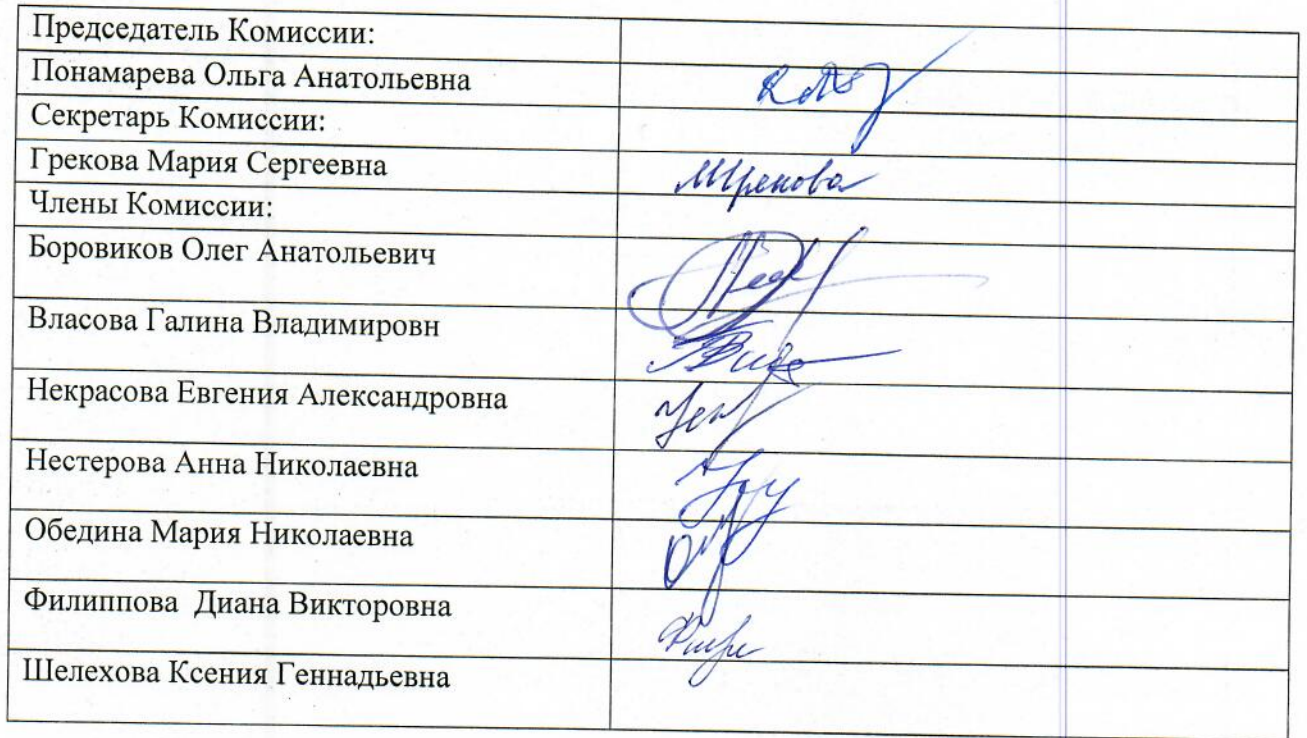 Председатель Комиссии:
Понамарева Ольга Анатольевна
Секретарь Комиссии:
Грекова Мария Сергеевна
Члены Комиссии:
Боровиков Олег Анатольевич
Власова Галина Владимировн
Некрасова Евгения Александровна
Нестерова Анна Николаевна
Обедина Мария Николаевна
Филиппова Диана Викторовна
Шелехова Ксения Геннадьевна